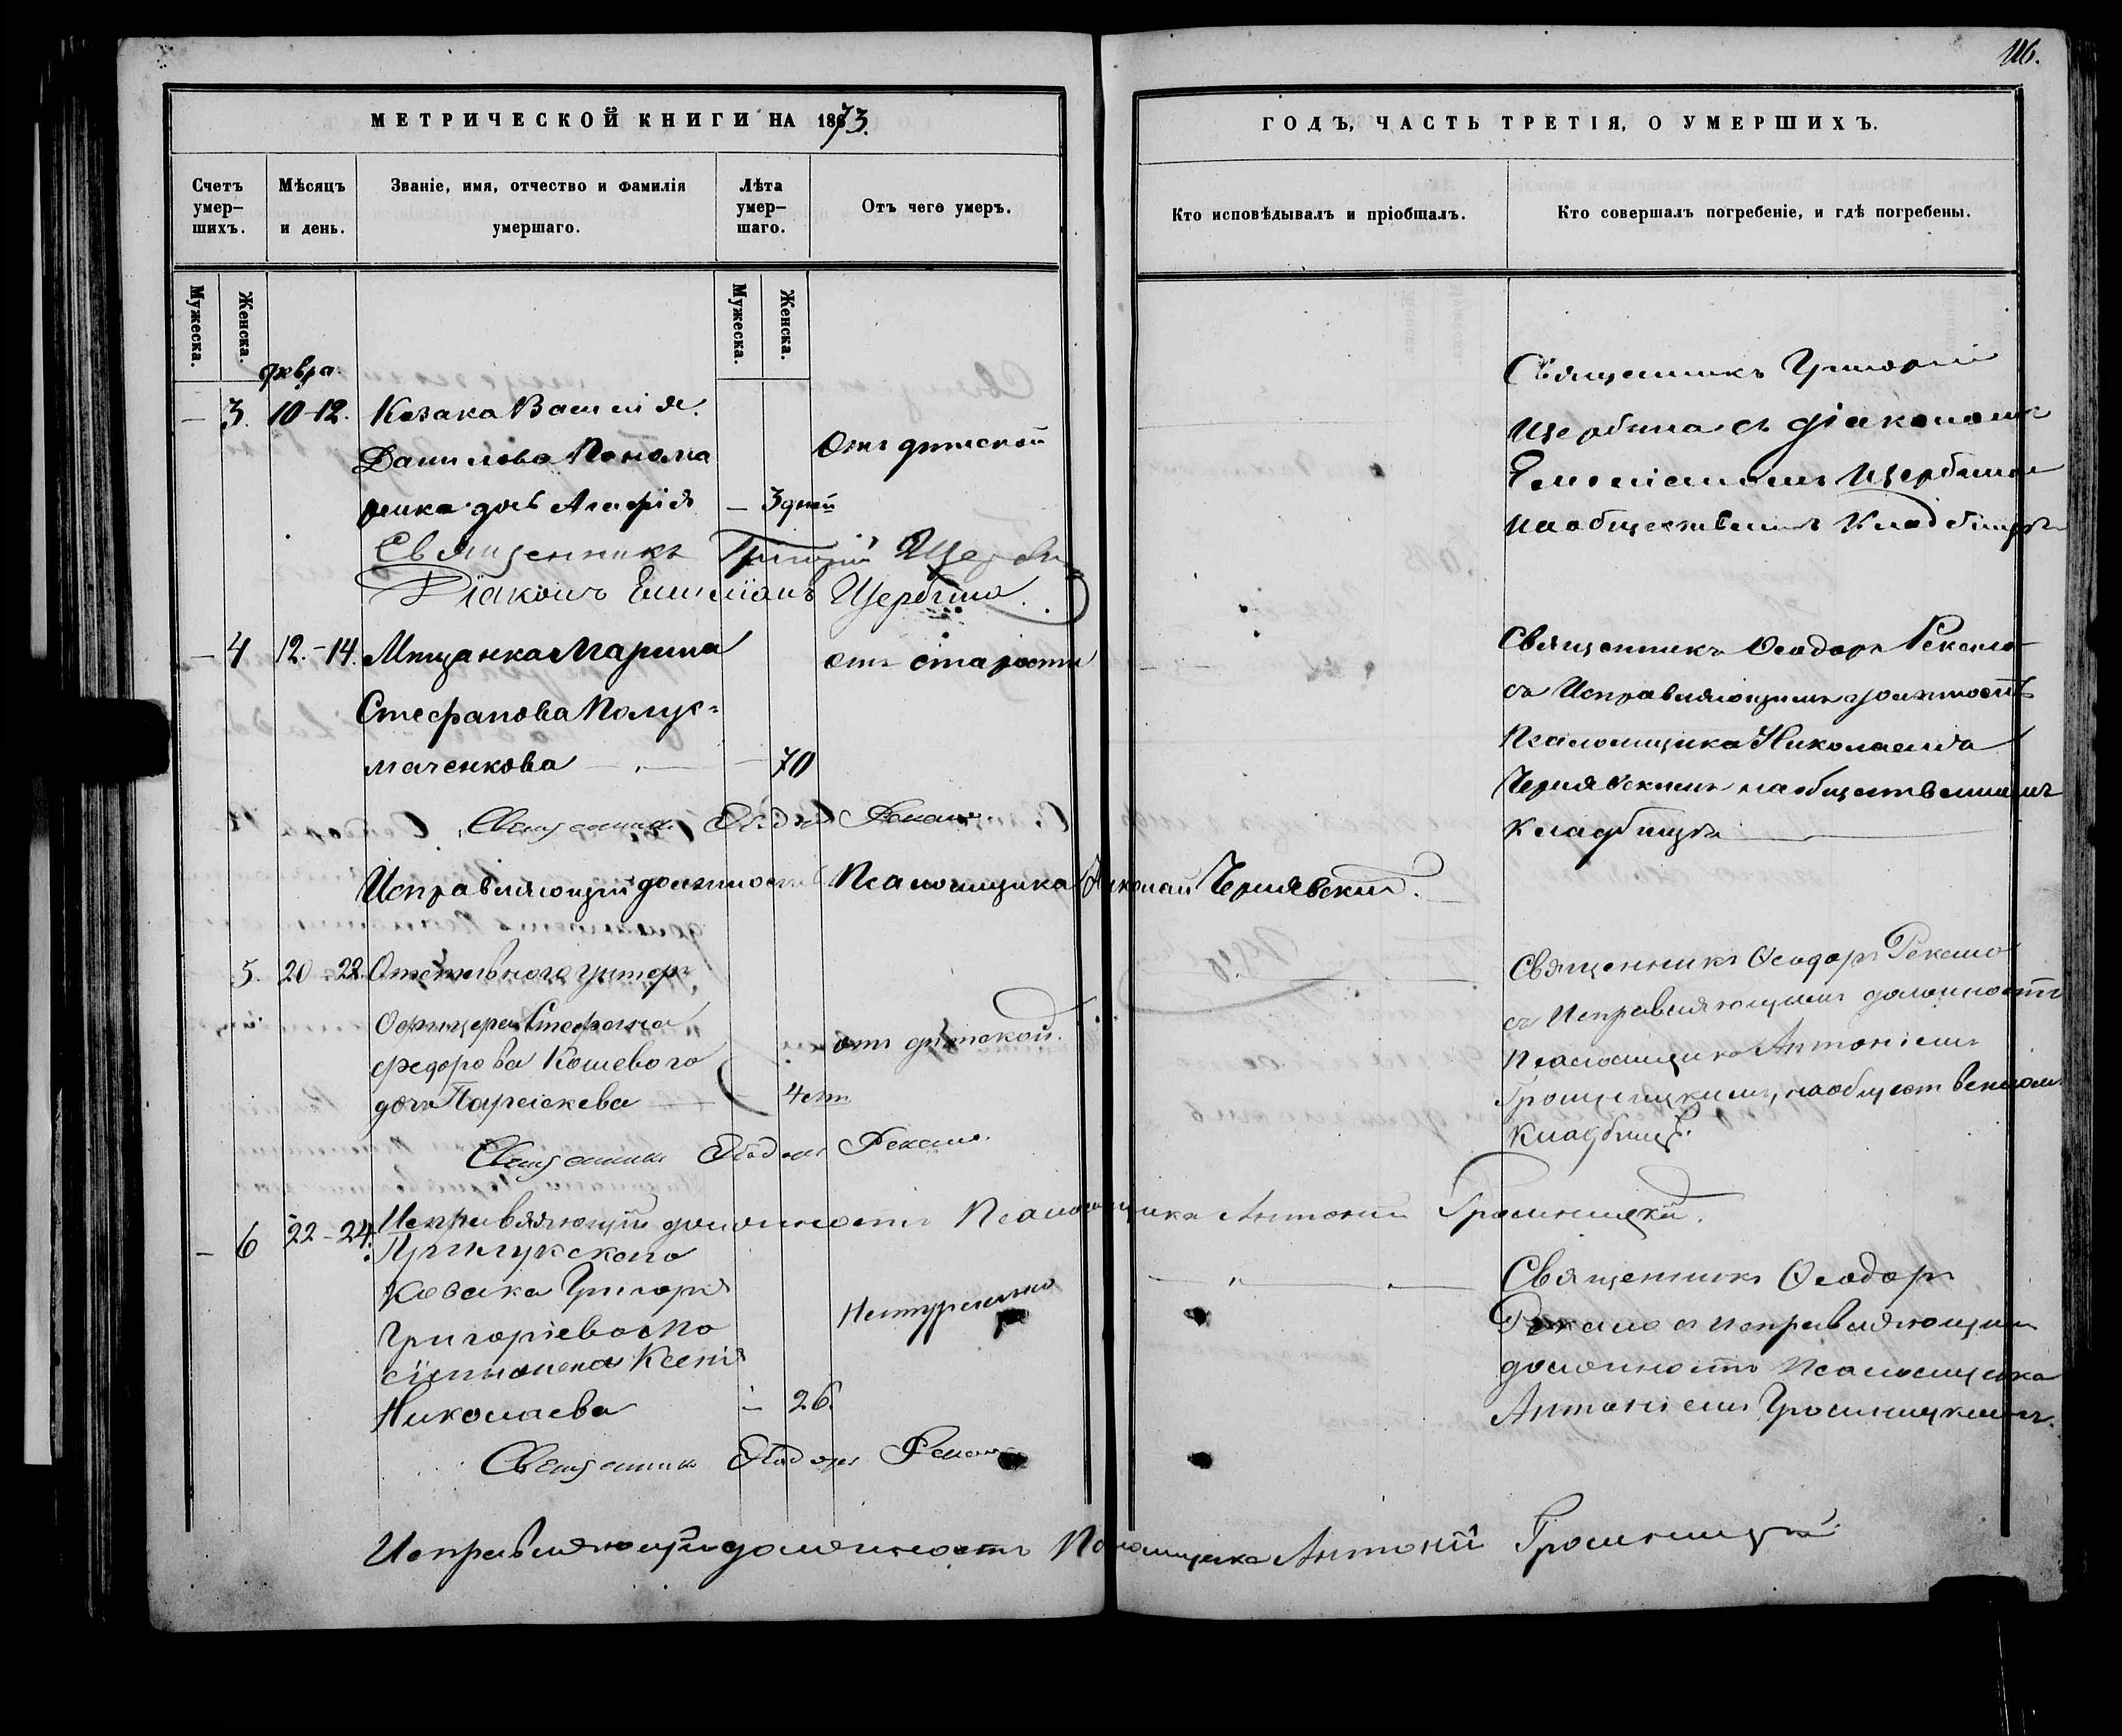 116.
МЕТРИЧЕСКОЙ КНИГИ НА 1873.
ГОДЪ, ЧАСТЬ ТРЕТІЯ, О УМЕРШИХЪ.
Счетъ умер-
шихъ.
Мѣсяцъ
и день.
Званіе, имя, отчество и фамилія
умершаго.
Лѣта
умер-
шаго.
Отъ чего умеръ.
Кто исповѣдывалъ и пріобщалъ.
Кто совершалъ погребеніе, и гдѣ погребены.
Мужеска.
Женска.
Мужеска.
Женска.
Февра.
3. 10-12. Козака Василія
Данилова Понома
ренка дочь Агафія
— 3 дней
Отъ дѣтской
Священникъ Григорій
Щербина съ діакономъ
Емеліаномъ Щербиною
на общественномъ кладбищѣ
Священникъ Григорій Щербина
Діаконъ Емеліанъ Щербина.
— 4 12.-14. Мѣщанка Марина
Стефанова
маченкова — 70
отъ старости
Священникъ Ѳеодоръ Рекало
съ Исправляющимъ должность
Псаломщика Николаемъ
Чернявскимъ на общественномъ
кладбищѣ
Священникъ Ѳеодоръ Рекало.
Исправляющій должность Псаломщика Николай Чернявскій.
5. 20-22. Отставного унтеръ
Офицера Стефана
Федорова Кошевого
дочь Параскева — 4 лѣтъ
отъ дѣтской.
Священникъ Ѳеодоръ Рекало
съ Исправляющимъ должность
Псаломщика Антоніемъ
на общественномъ
кладбищѣ.
Священникъ Ѳеодоръ Рекало.
Исправляющій должность Псаломщика Антоній
— 6 22-24. Прилукского
Козака Григорія
Григоріева
Ксенія
Николаева — 26.
Натурально
Священникъ Ѳеодоръ
Рекало съ исправляющимъ
должность Псаломщика
Антоніемъ
Священникъ Ѳеодоръ Рекало
Исправляющій должность Псаломщика Антоній